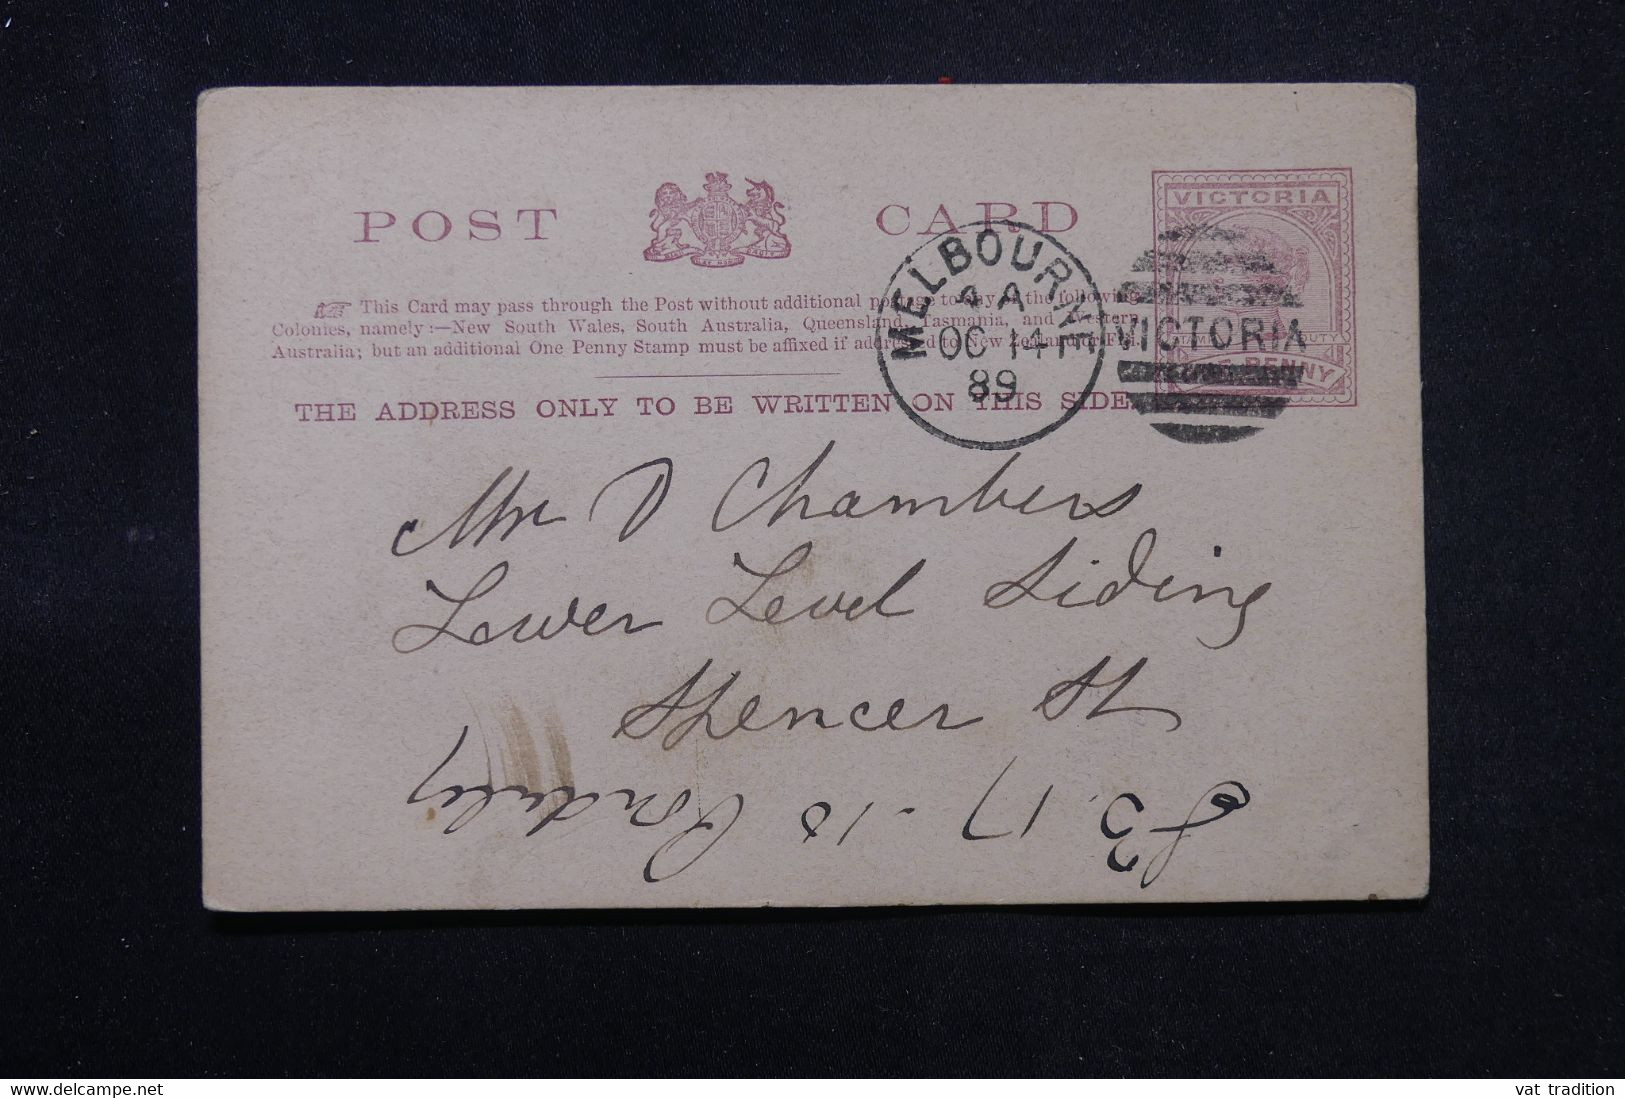 POST CARD
VICTORIA
This Card may pass through the Post without additional postage to any of the following
Colonies, namely:—New South Wales, South Australia, Queensland, Tasmania, and Western
Australia; but an additional One Penny Stamp must be affixed if addressed to New Zealand or Fiji.
STAMP DUTY
ONE PENNY
THE ADDRESS ONLY TO BE WRITTEN ON THIS SIDE.
MELBOURNE
4 A
OC 14
89
VICTORIA
Mr D Chambers
Lower Level Siding
Spencer St
£3.17-10
delcampe.net
vat tradition